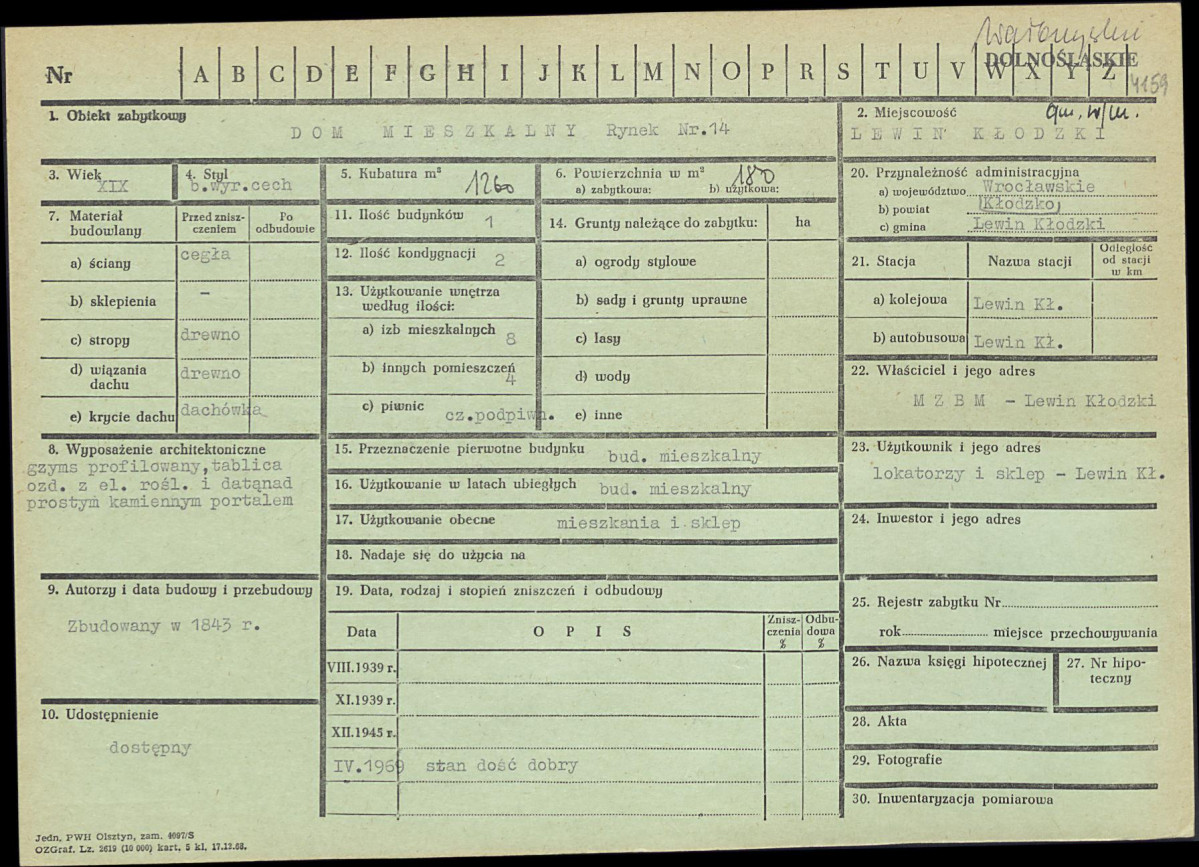 Wałbrzyskie
DOLNOŚLĄSKIE
4159
Nr A B C D E F G H I J K L M N O P R S T U V W X Y Z
1. Obiekt zabytkowy
DOM MIESZKALNY Rynek Nr.14
2. Miejscowość gm. w/m.
LEWIN KŁODZKI
3. Wiek
XIX
4. Styl
b.wyr.cech
5. Kubatura m³ 1260
6. Powierzchnia w m² 180
a) zabytkowa: b) użytkowa:
20. Przynależność administracyjna
a) województwo Wrocławskie
b) powiat (Kłodzko)
c) gmina Lewin Kłodzki
7. Materiał budowlany
Przed zniszczeniem
Po odbudowie
a) ściany cegła
b) sklepienia –
c) stropy drewno
d) wiązania dachu drewno
e) krycie dachu dachówka
11. Ilość budynków 1
12. Ilość kondygnacji 2
13. Użytkowanie wnętrza według ilości:
a) izb mieszkalnych 8
b) innych pomieszczeń 4
c) piwnic cz.podpiwn.
14. Grunty należące do zabytku: ha
a) ogrody stylowe
b) sady i grunty uprawne
c) lasy
d) wody
e) inne
21. Stacja Nazwa stacji Odległość od stacji w km
a) kolejowa Lewin Kł.
b) autobusowa Lewin Kł.
22. Właściciel i jego adres
M Z B M – Lewin Kłodzki
8. Wyposażenie architektoniczne
gzyms profilowany,tablica
ozd. z el. rośl. i datąnad
prostym kamiennym portalem
15. Przeznaczenie pierwotne budynku bud. mieszkalny
16. Użytkowanie w latach ubiegłych bud. mieszkalny
17. Użytkowanie obecne mieszkania i sklep
18. Nadaje się do użycia na
23. Użytkownik i jego adres
lokatorzy i sklep – Lewin Kł.
24. Inwestor i jego adres
9. Autorzy i data budowy i przebudowy
Zbudowany w 1843 r.
19. Data, rodzaj i stopień zniszczeń i odbudowy
Data OPIS Zniszczenia % Odbudowa %
VIII.1939 r.
XI.1939 r.
XII.1945 r.
IV.1969 stan dość dobry
25. Rejestr zabytku Nr
rok miejsce przechowywania
26. Nazwa księgi hipotecznej
27. Nr hipoteczny
28. Akta
29. Fotografie
30. Inwentaryzacja pomiarowa
10. Udostępnienie
dostępny
Jedn. PWH Olsztyn, zam. 4097/S
OZGraf. Lz. 2619 (10 000) kart. 5 kl. 17.12.68.